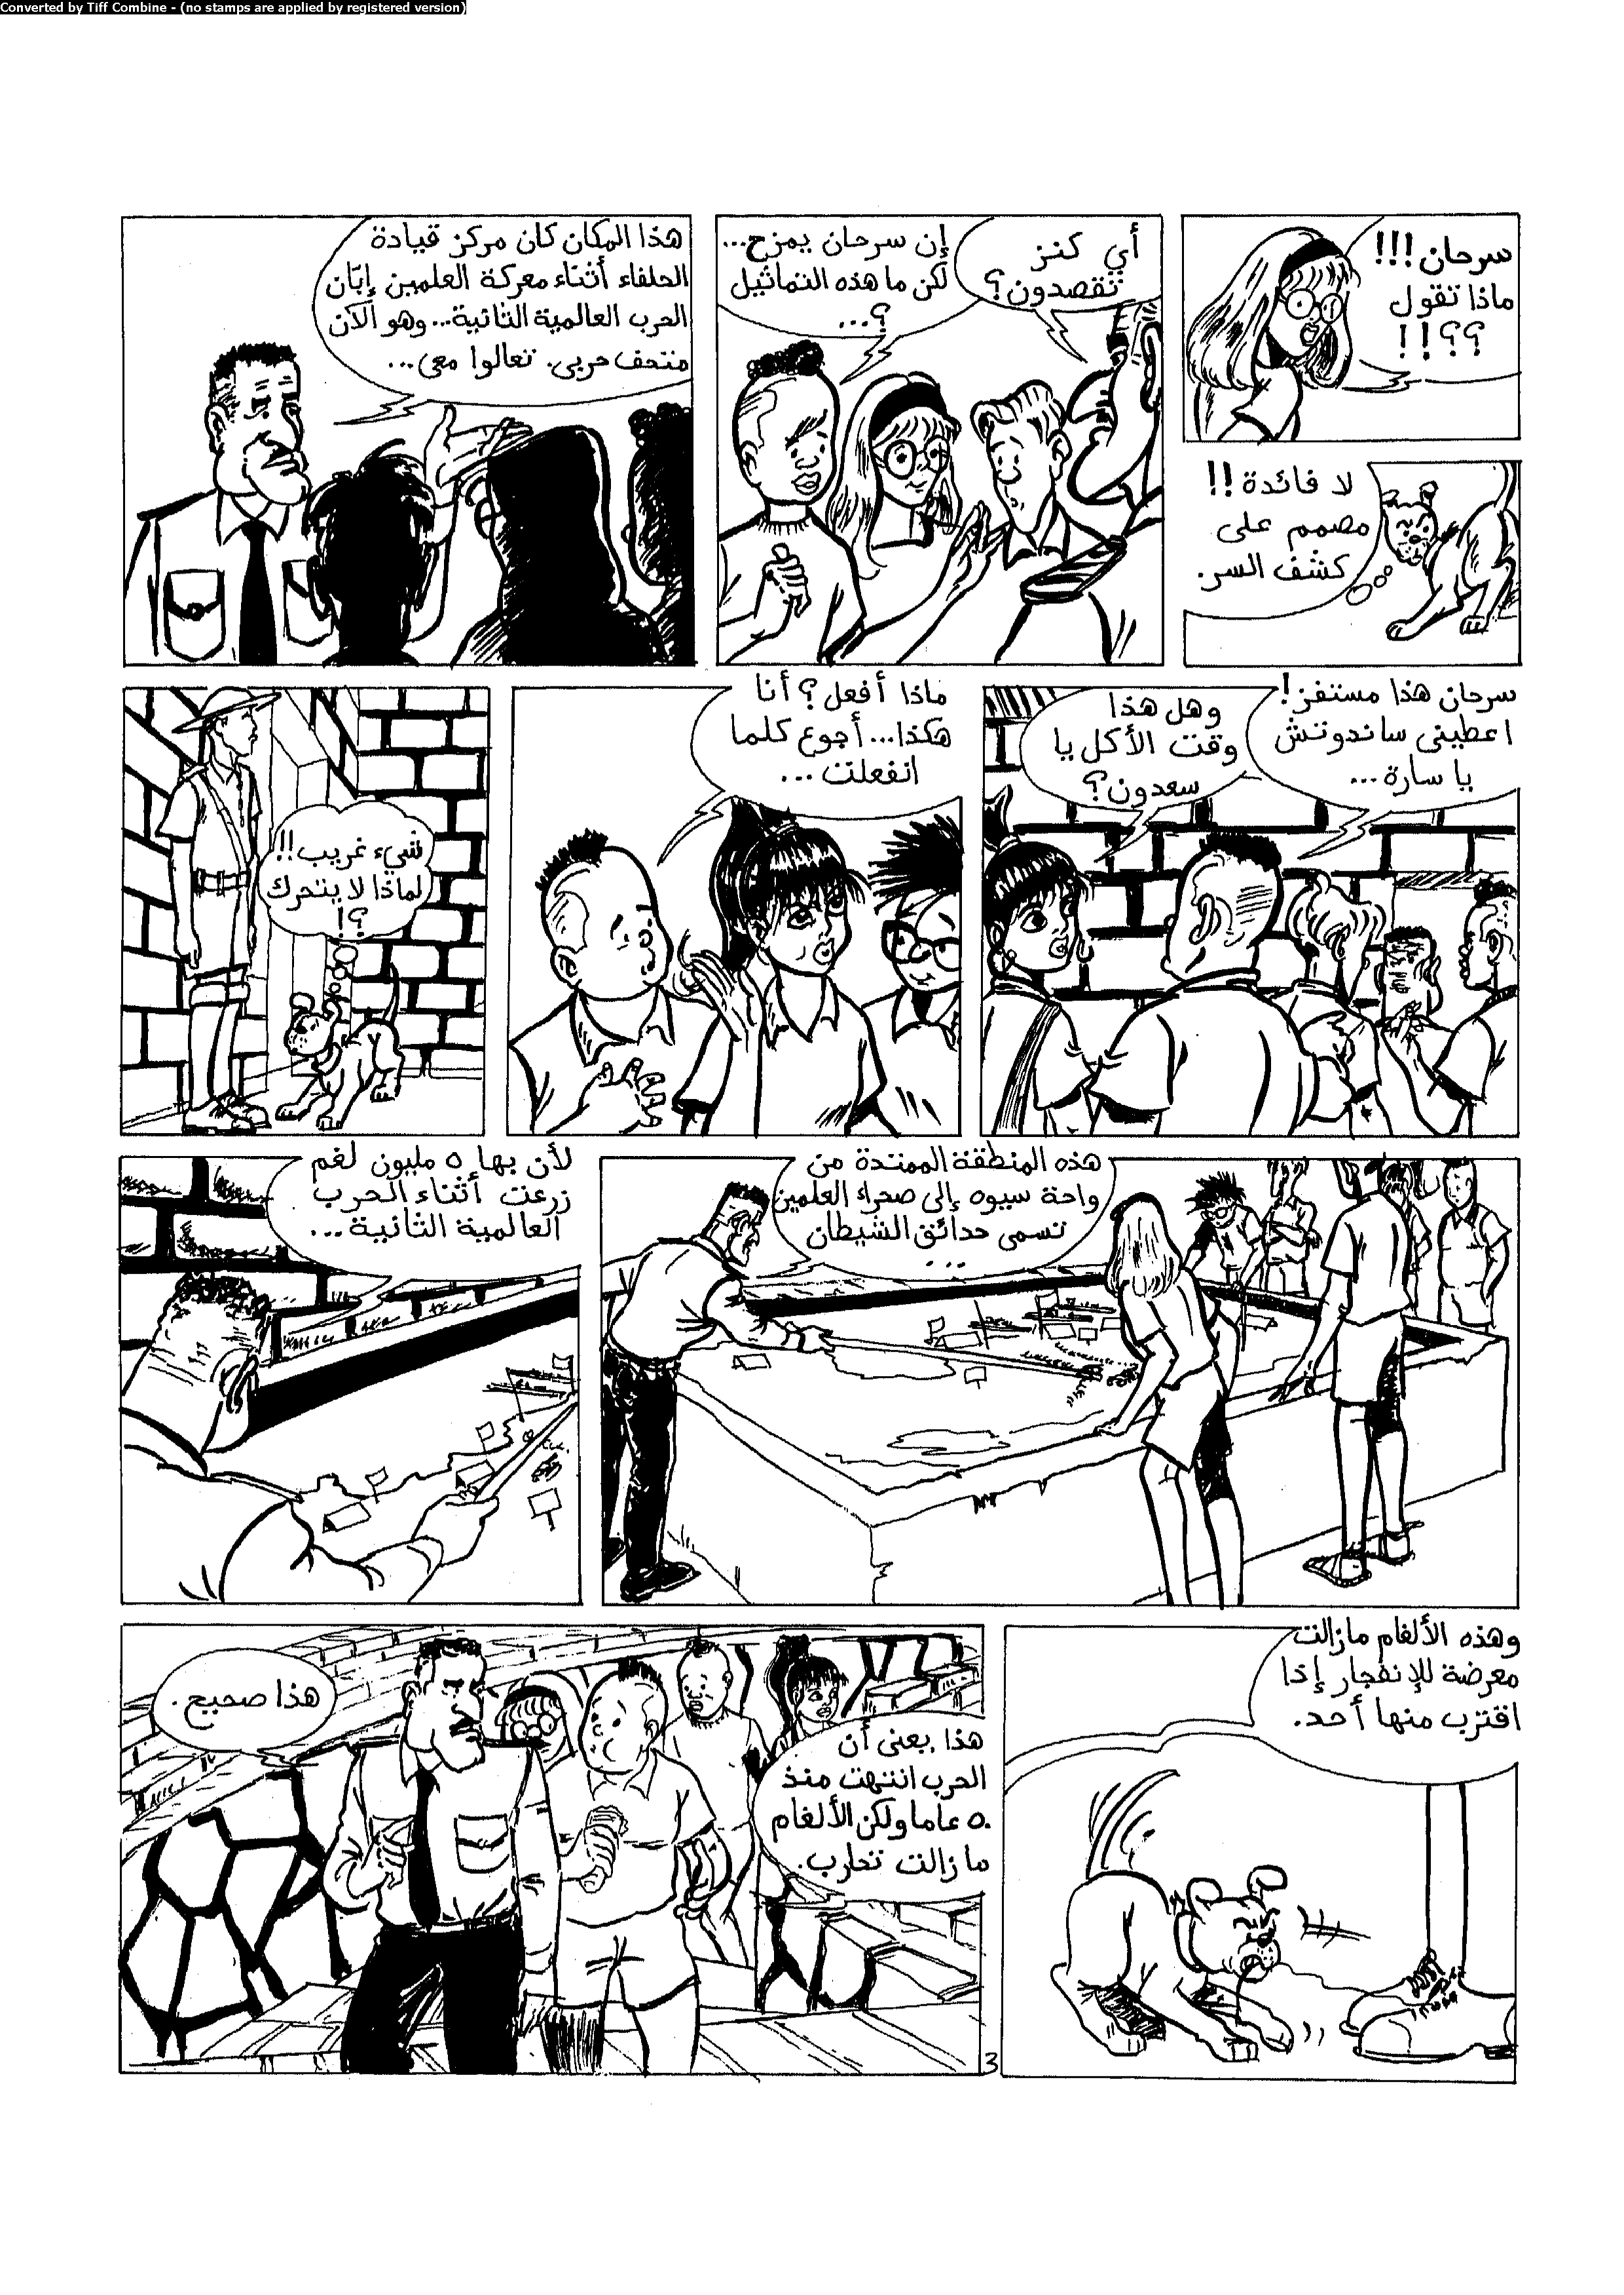 Converted by Tiff Combine - (no stamps are applied by registered version)
سرحان!!!
ماذا تقول
؟؟!!
لا فائدة!!
مصمم على
كشف السر.
أي كنز
تقصدون؟
إن سرحان يمزح...
لكن ما هذه التماثيل
؟...
هذا المكان كان مركز قيادة
الحلفاء أثناء معركة العلمين إبّان
الحرب العالمية الثانية...وهو الآن
متحف حربى. تعالوا معى...
سرحان هذا مستفز!
اعطينى ساندوتش
يا سارة...
وهل هذا
وقت الأكل يا
سعدون؟
ماذا أفعل؟ أنا
هكذا...أجوع كلما
انفعلت...
شيء غريب!!
لماذا لا يتحرك
؟!
هذه المنطقة الممتدة من
واحة سيوه إلى صحراء العلمين
تسمى حدائق الشيطان
...
لأن بها ٥ مليون لغم
زرعت أثناء الحرب
العالمية الثانية...
وهذه الألغام مازالت
معرضة للإنفجار إذا
اقترب منها أحد.
هذا يعنى أن
الحرب انتهت منذ
٥٠ عاما ولكن الألغام
مازالت تحارب.
هذا صحيح.
3